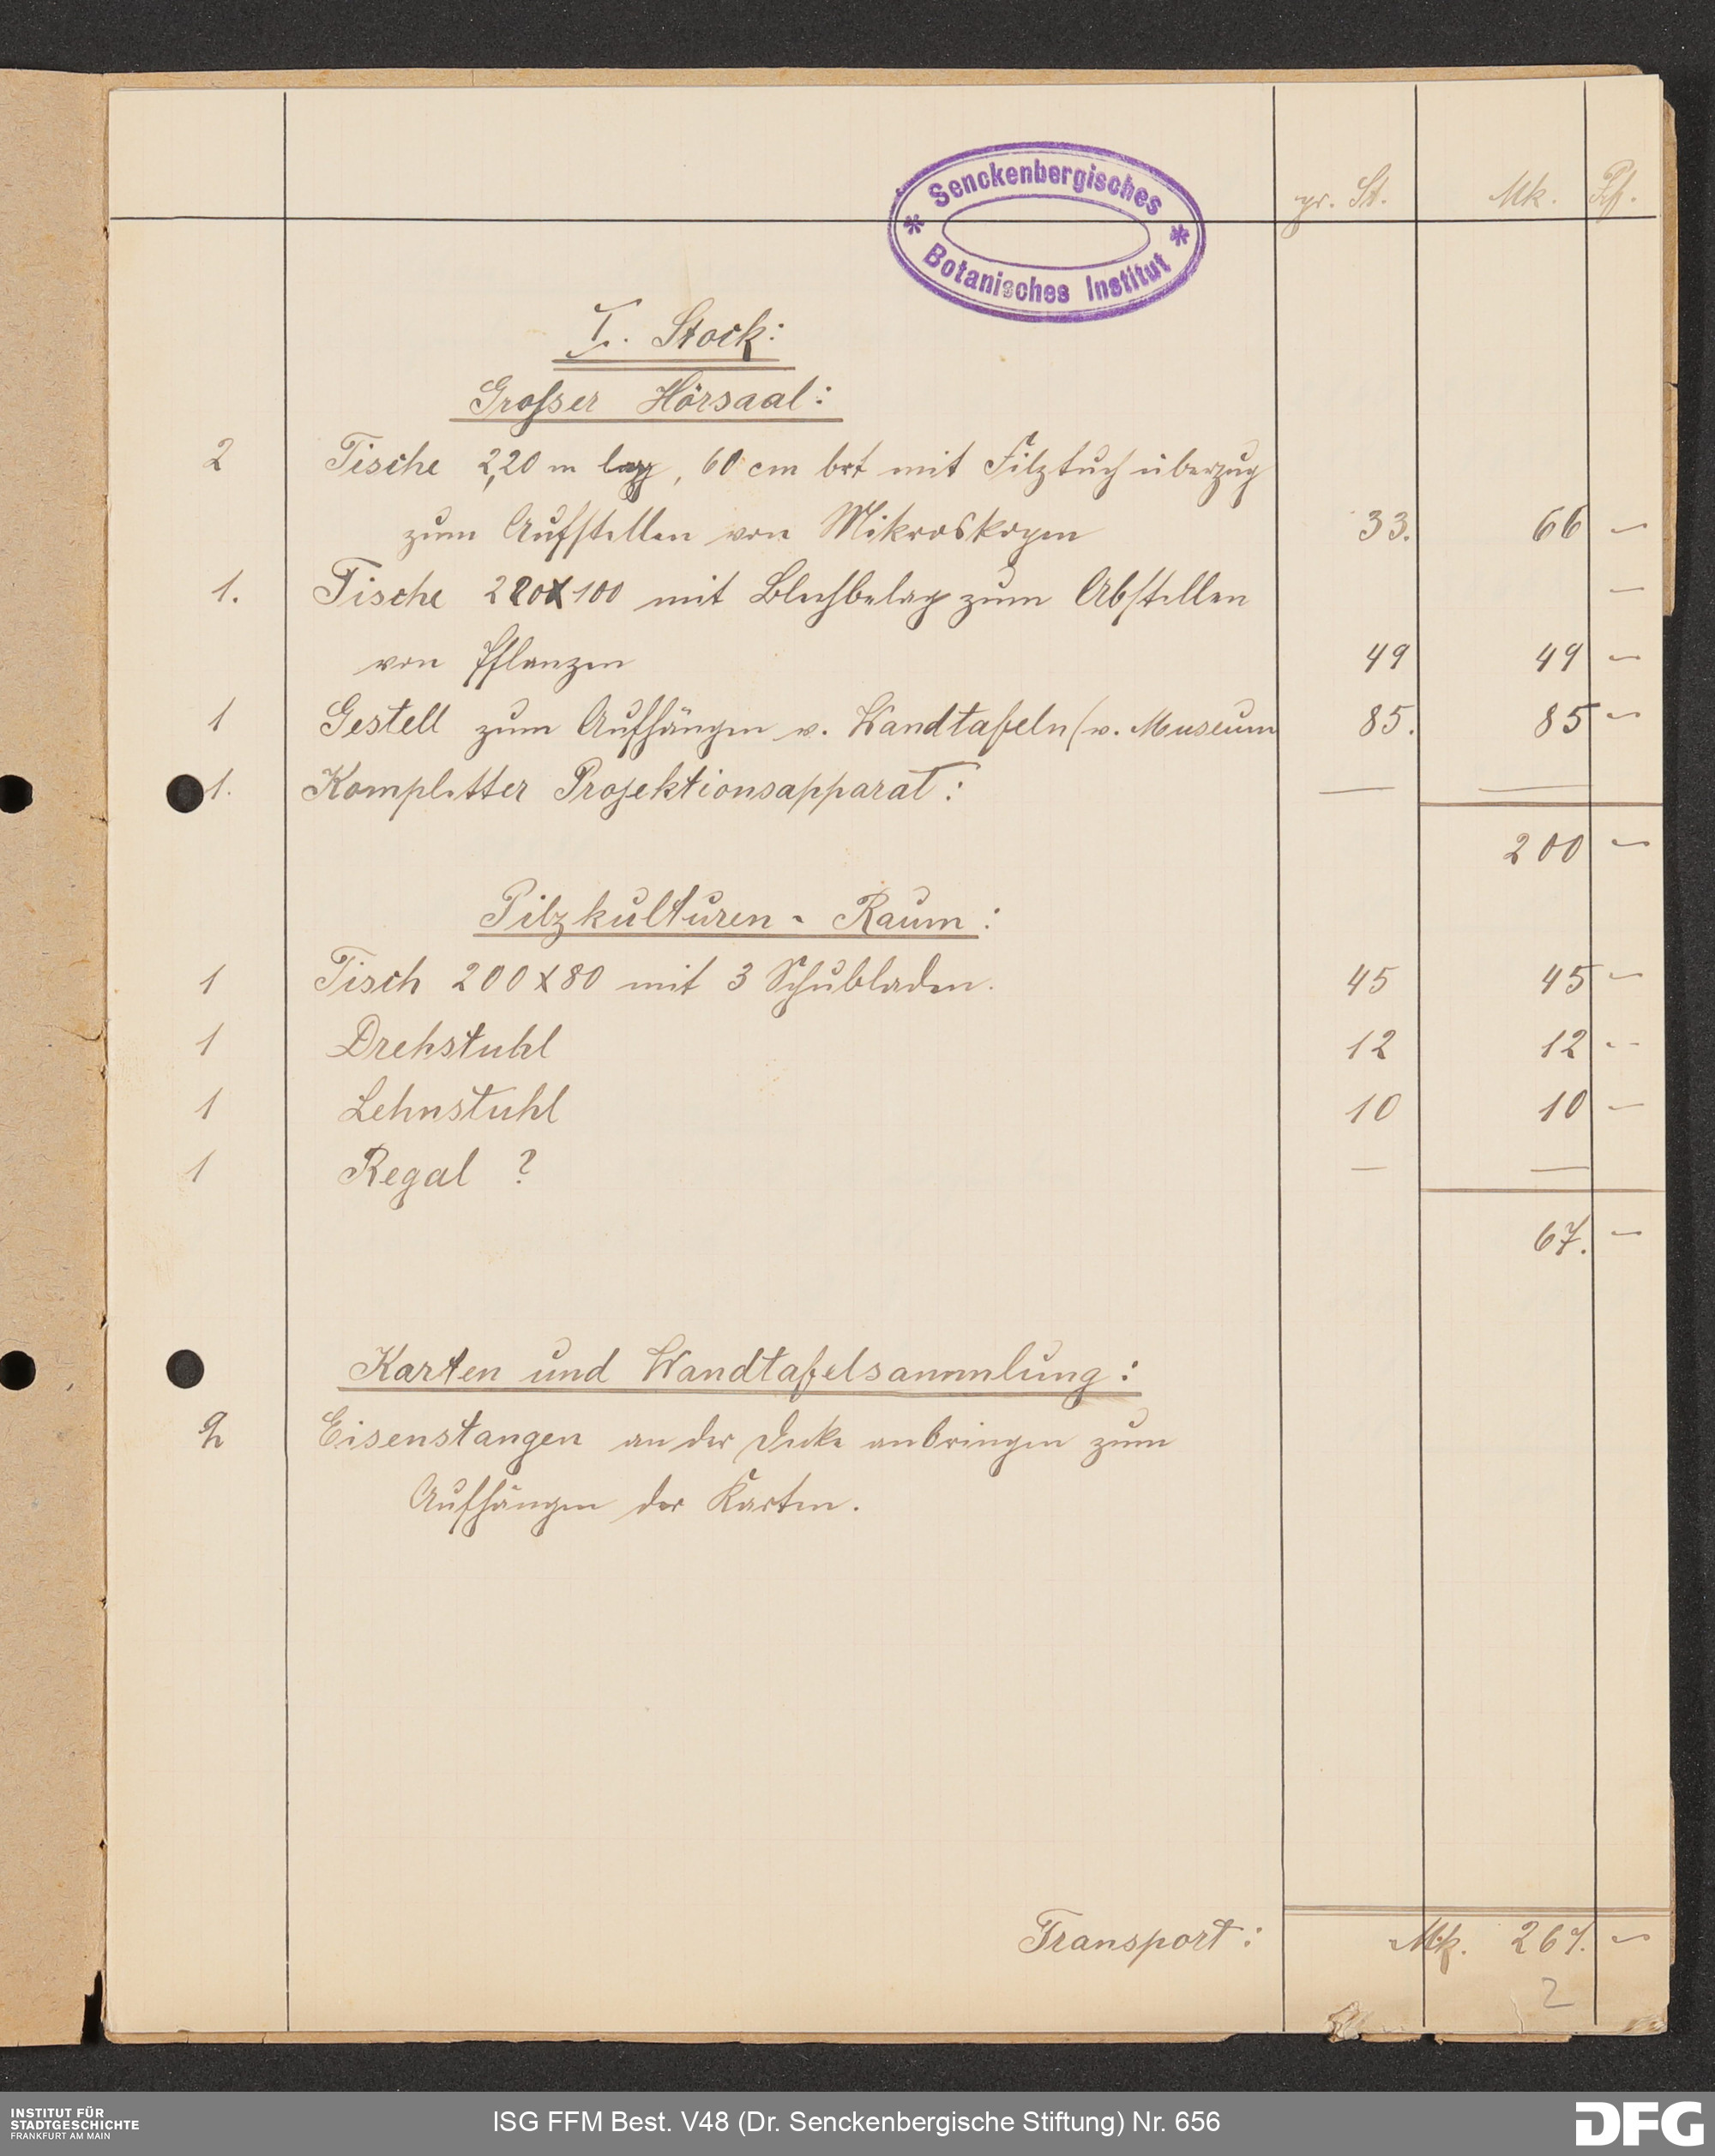 Senckenbergisches
Botanisches Institut
pr. St. Mk. Pf.
I. Stock:
Grosser Hörsaal:
2 Tische 2,20 m lg, 60 cm brt mit Filztuch überzug
zum Aufstellen von Mikroskopen 33. 66 —
1. Tische 220x100 mit Blechbelag zum Abstellen —
von Pflanzen 49 49 —
1 Gestell zum Aufhängen v. Wandtafeln (v. Museum 85. 85 —
1. Kompletter Projektionsapparat: — —
200 —
Pilzkulturen-Raum:
1 Tisch 200x80 mit 3 Schubladen. 45 45 —
1 Drehstuhl 12 12 —
1 Lehnstuhl 10 10 —
1 Regal ? — —
67. —
Karten und Wandtafelsammlung:
2 Eisenstangen an der Decke anbringen zum
Aufhängen der Karten.
Transport: Mk. 267. —
2
INSTITUT FÜR
STADTGESCHICHTE
FRANKFURT AM MAIN
ISG FFM Best. V48 (Dr. Senckenbergische Stiftung) Nr. 656
DFG